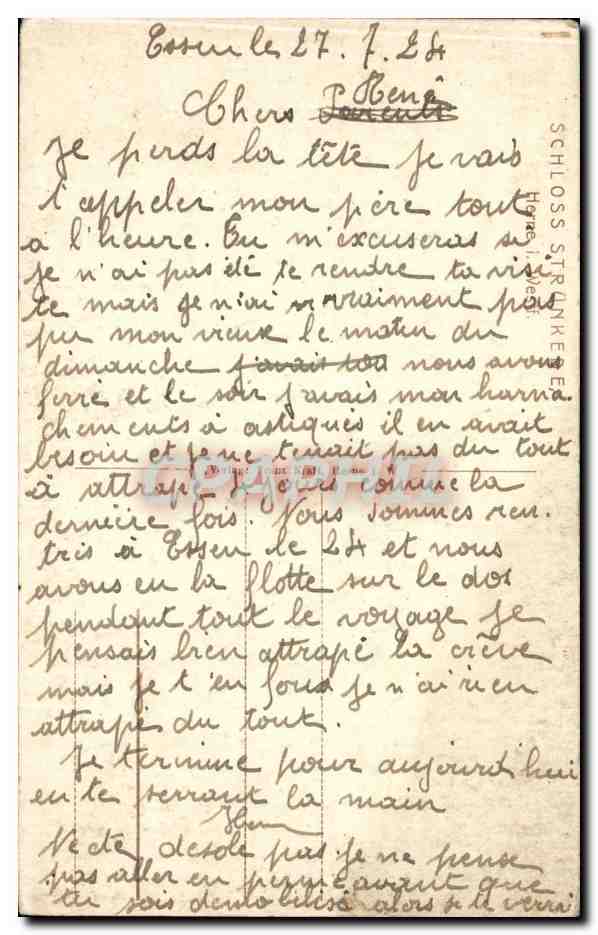 Essen le 27.7.24
Chers Parents René
Je perds la tête je vais
t'appeler mon père tout
a l'heure. Tu m'excuseras si
je n'ai pas été te rendre ta visi
te mais je n'ai vraiment pas
pu mon vieux le matin du
dimanche j'avais tou nous avons
ferré et le soir j'avais mon harna
chements à astiqués il en avait
besoin et je ne tenait pas du tout
à attrapé jours comme la
dernière fois. Nous sommes ren-
trés à Essen le 24 et nous
avons eu la flotte sur le dos
pendant tout le voyage je
pensais bien attrapé la crève
mais je t'en fous je n'ai rien
attrapé du tout.
Je termine pour aujourd'hui
en te serrant la main
Ne te désole pas je ne pense
pas aller en perme avant que
tu sois démobilisé alors je te verrai
SCHLOSS STRÜNKEDE
Herne i. Westf.
Verlag: Franz Kraft, Herne i. W.